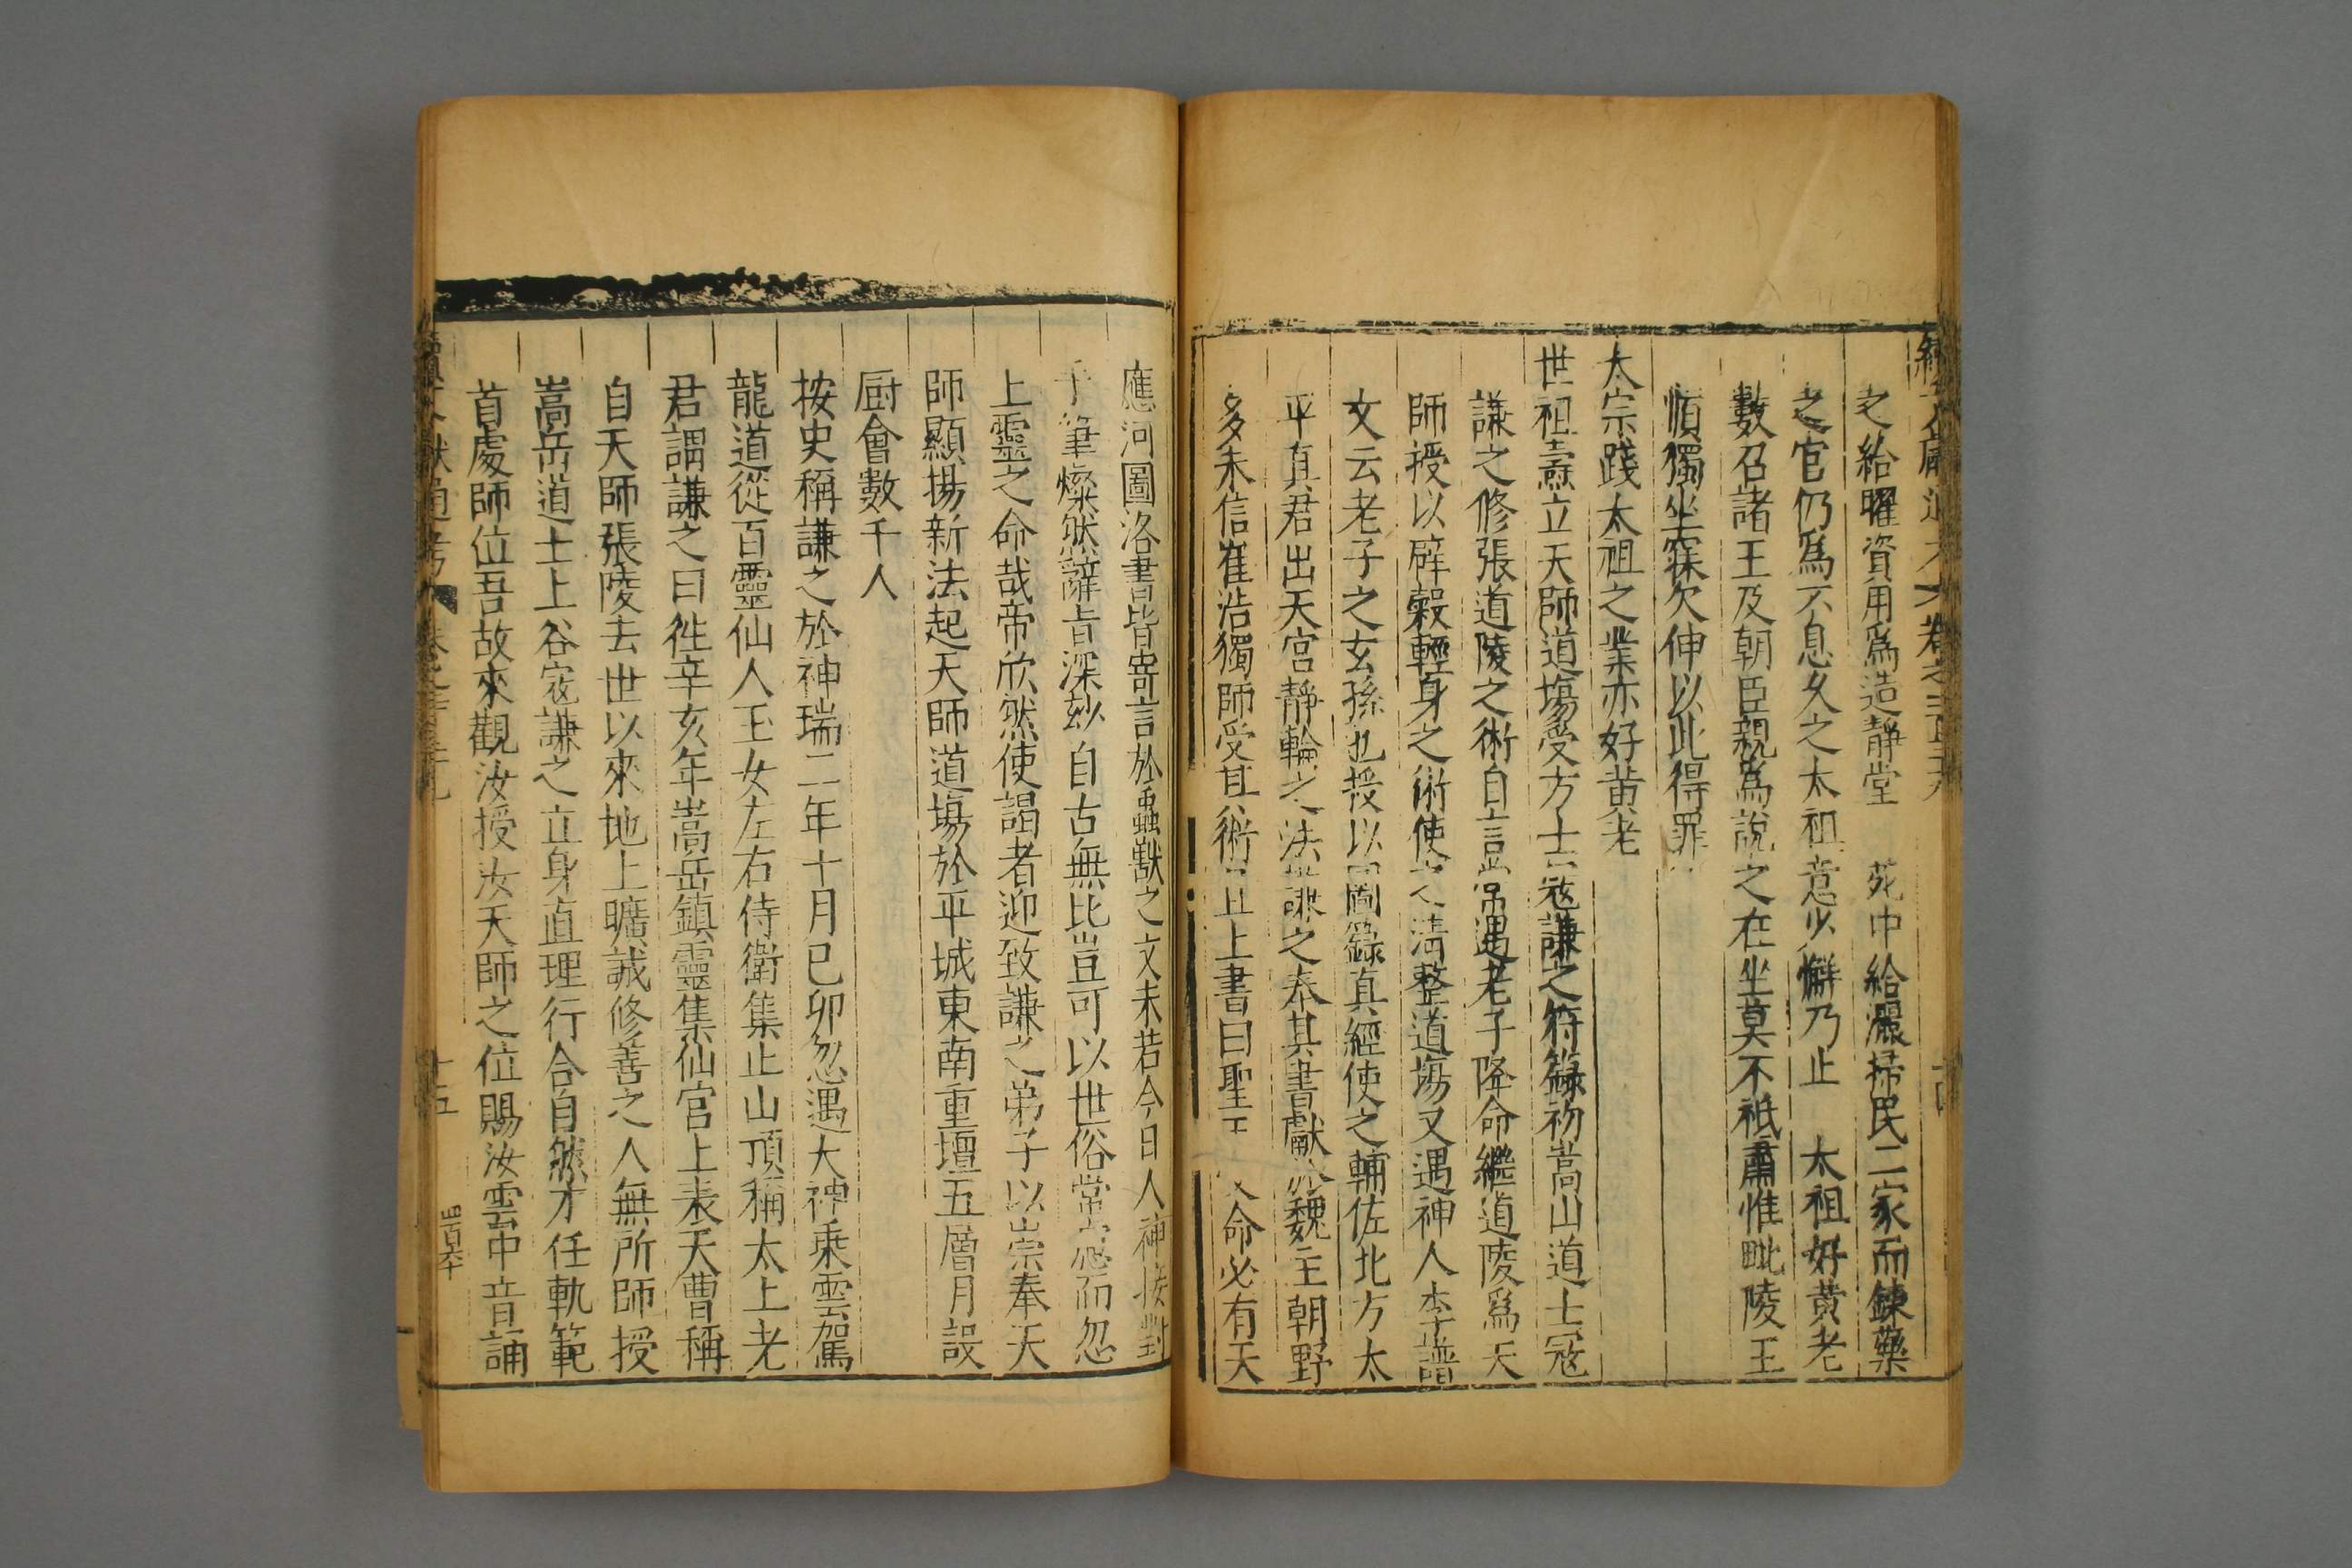 之給曜資用爲造靜堂 苑中給灑掃民二家而鍊藥
之官仍爲不息久之太祖意少懈乃止 太祖好黄老
數召諸王及朝臣親爲說之在坐莫不祗肅惟毗陵王
順獨坐寐欠伸以此得罪
太宗踐太祖之業亦好黄老
世祖燾立天師道塲受方士寇謙之符籙初嵩山道士寇
謙之修張道陵之術自言嘗遇老子降命繼道陵爲天
師授以辟穀輕身之術使之淸整道塲又遇神人李譜
文云老子之玄孫也授以圖籙真經使之輔佐北方太
平真君出天宮靜輪之法謙之奉其書獻於魏主朝野
多未信崔浩獨師受其術且上書曰聖王 命必有天
應河圖洛書皆寄言於蟲獸之文未若今日人神接對
手筆燦然辭旨深玅自古無比豈可以世俗常 而忽
上靈之命哉帝欣然使謁者迎致謙之弟子以崇奉天
師顯揚新法起天師道塲於平城東南重壇五層月設
厨會數千人
按史稱謙之於神瑞二年十月巳卯忽遇大神乘雲駕
龍道從百靈仙人玉女左右侍衞集止山頂稱太上老
君謂謙之曰徃辛亥年嵩岳鎮靈集仙官上表天曹稱
自天師張陵去世以來地上曠誠修善之人無所師授
嵩岳道士上谷寇謙之立身直理行合自然才任軌範
首處師位吾故來觀汝授汝天師之位賜汝雲中音誦
十五
四百六十